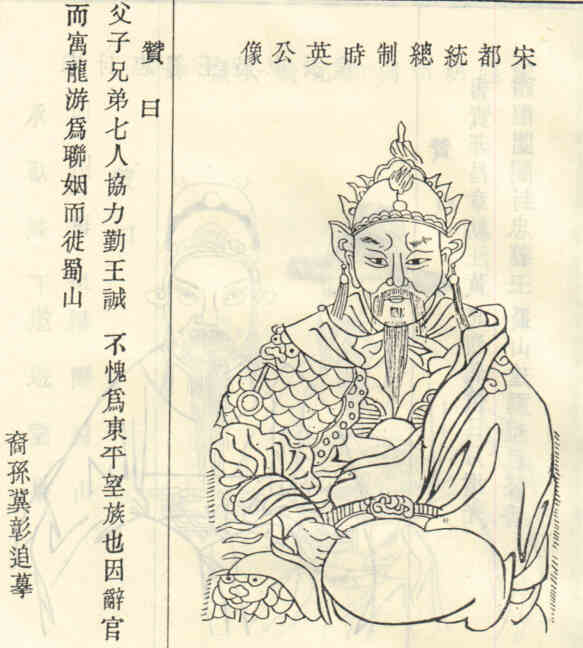 宋都統總制時英公像
贊曰
父子兄弟七人協力勤王誠 不愧爲東平望族也因辭官
而寓龍游爲聯姻而徙蜀山
裔孫冀彰追摹